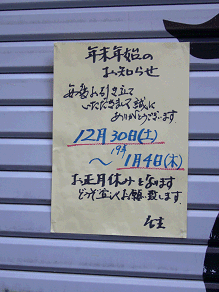 年末年始の
お知らせ
毎度お引き立て
いただきまして誠に
ありがとうございます
12月30日(土)
19年
〜1月4日(木)
お正月休みとなります
どうぞ宜しくお願い致します。
店主